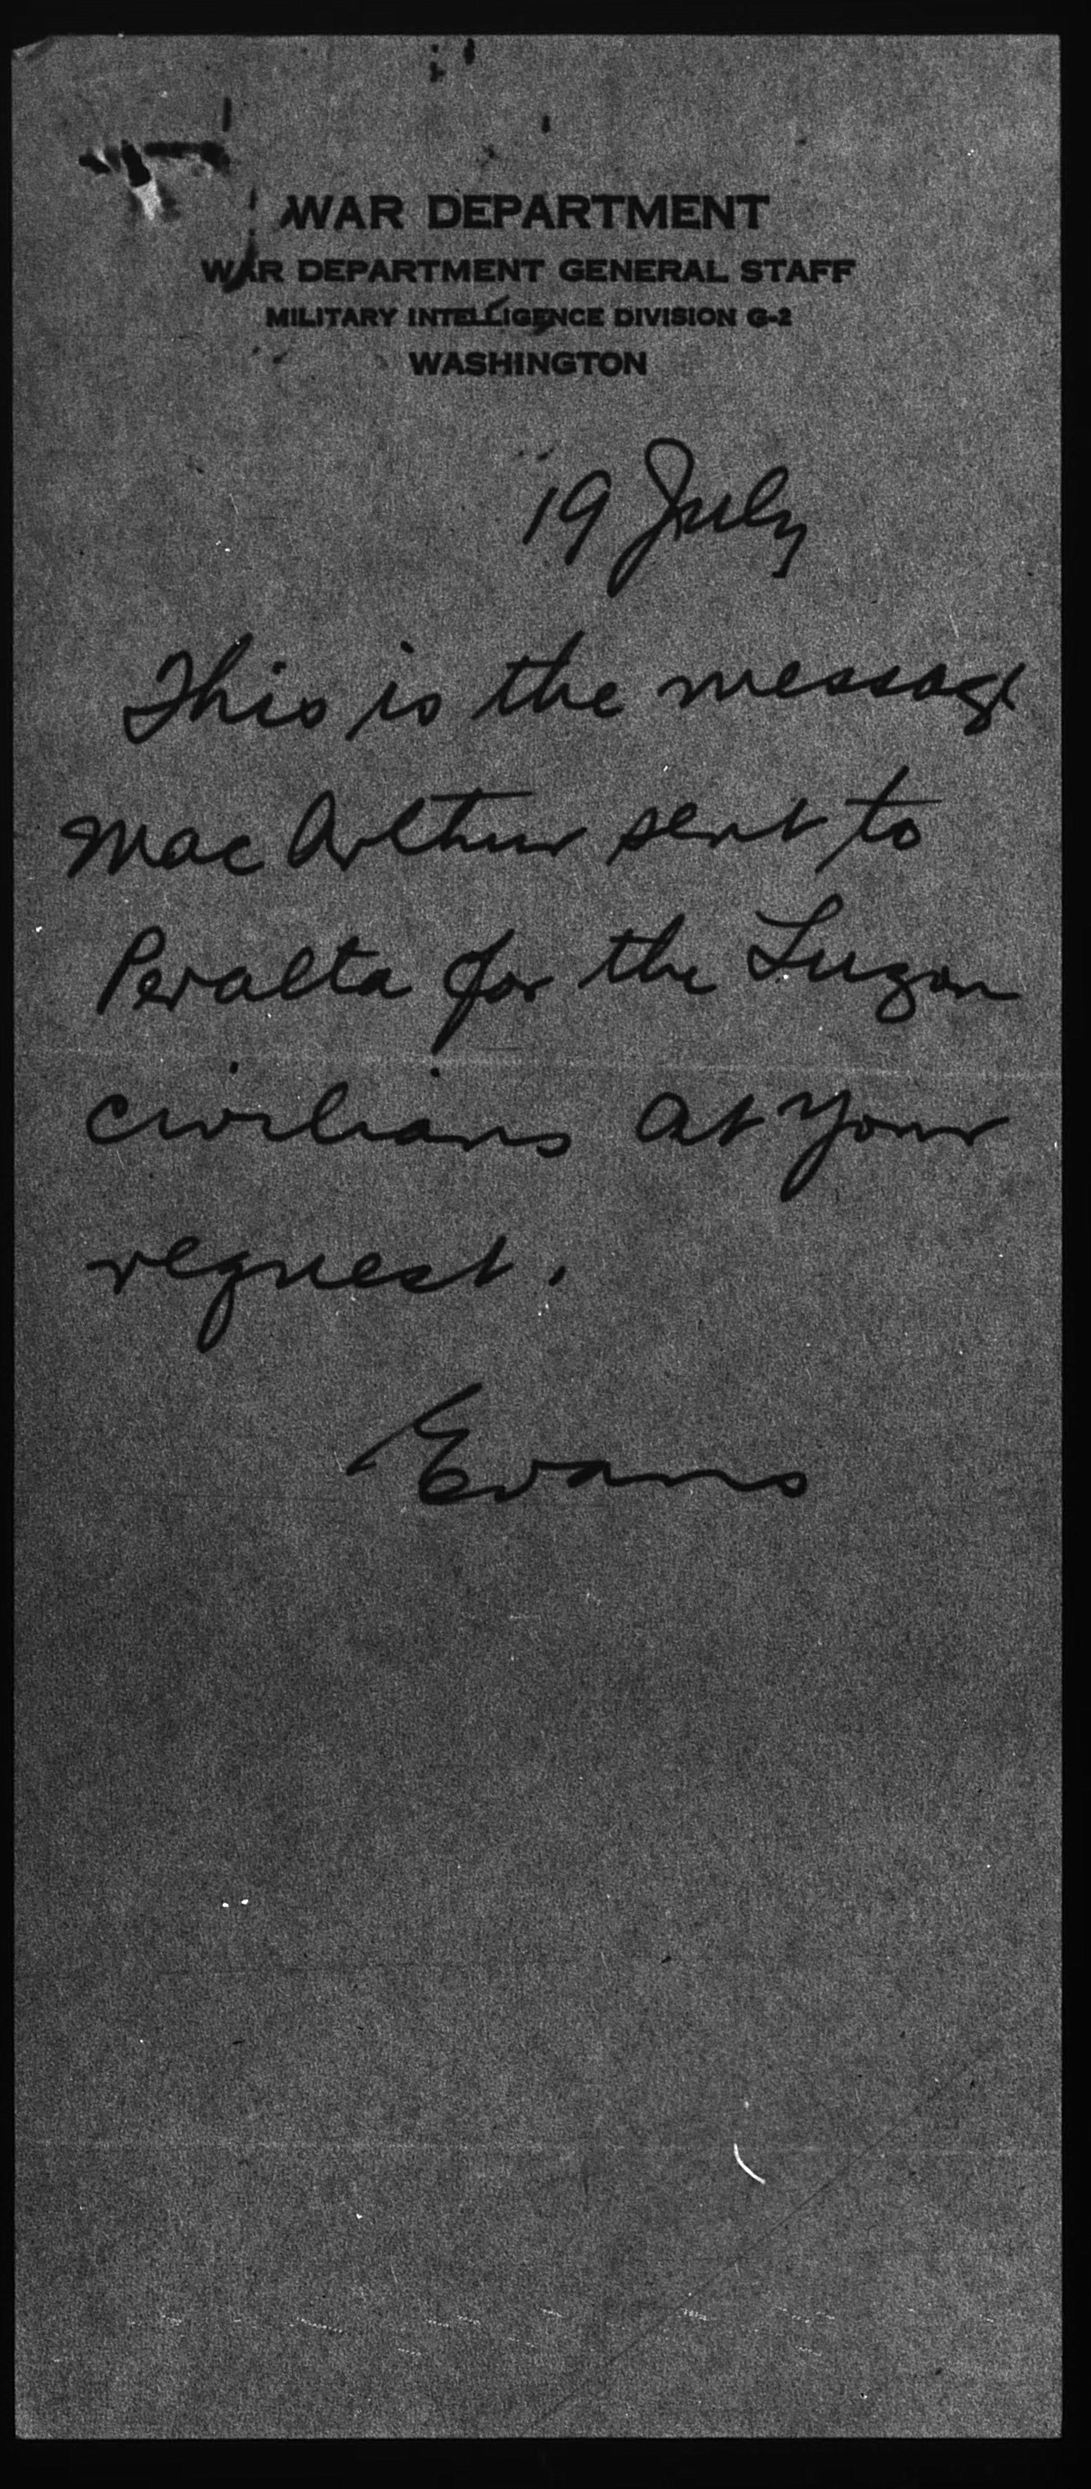 WAR DEPARTMENT
WAR DEPARTMENT GENERAL STAFF
MILITARY INTELLIGENCE DIVISION G-2
WASHINGTON
19 July
This is the message
MacArthur sent to
Peralta for the Luzon
civilians at your
request.
Evans